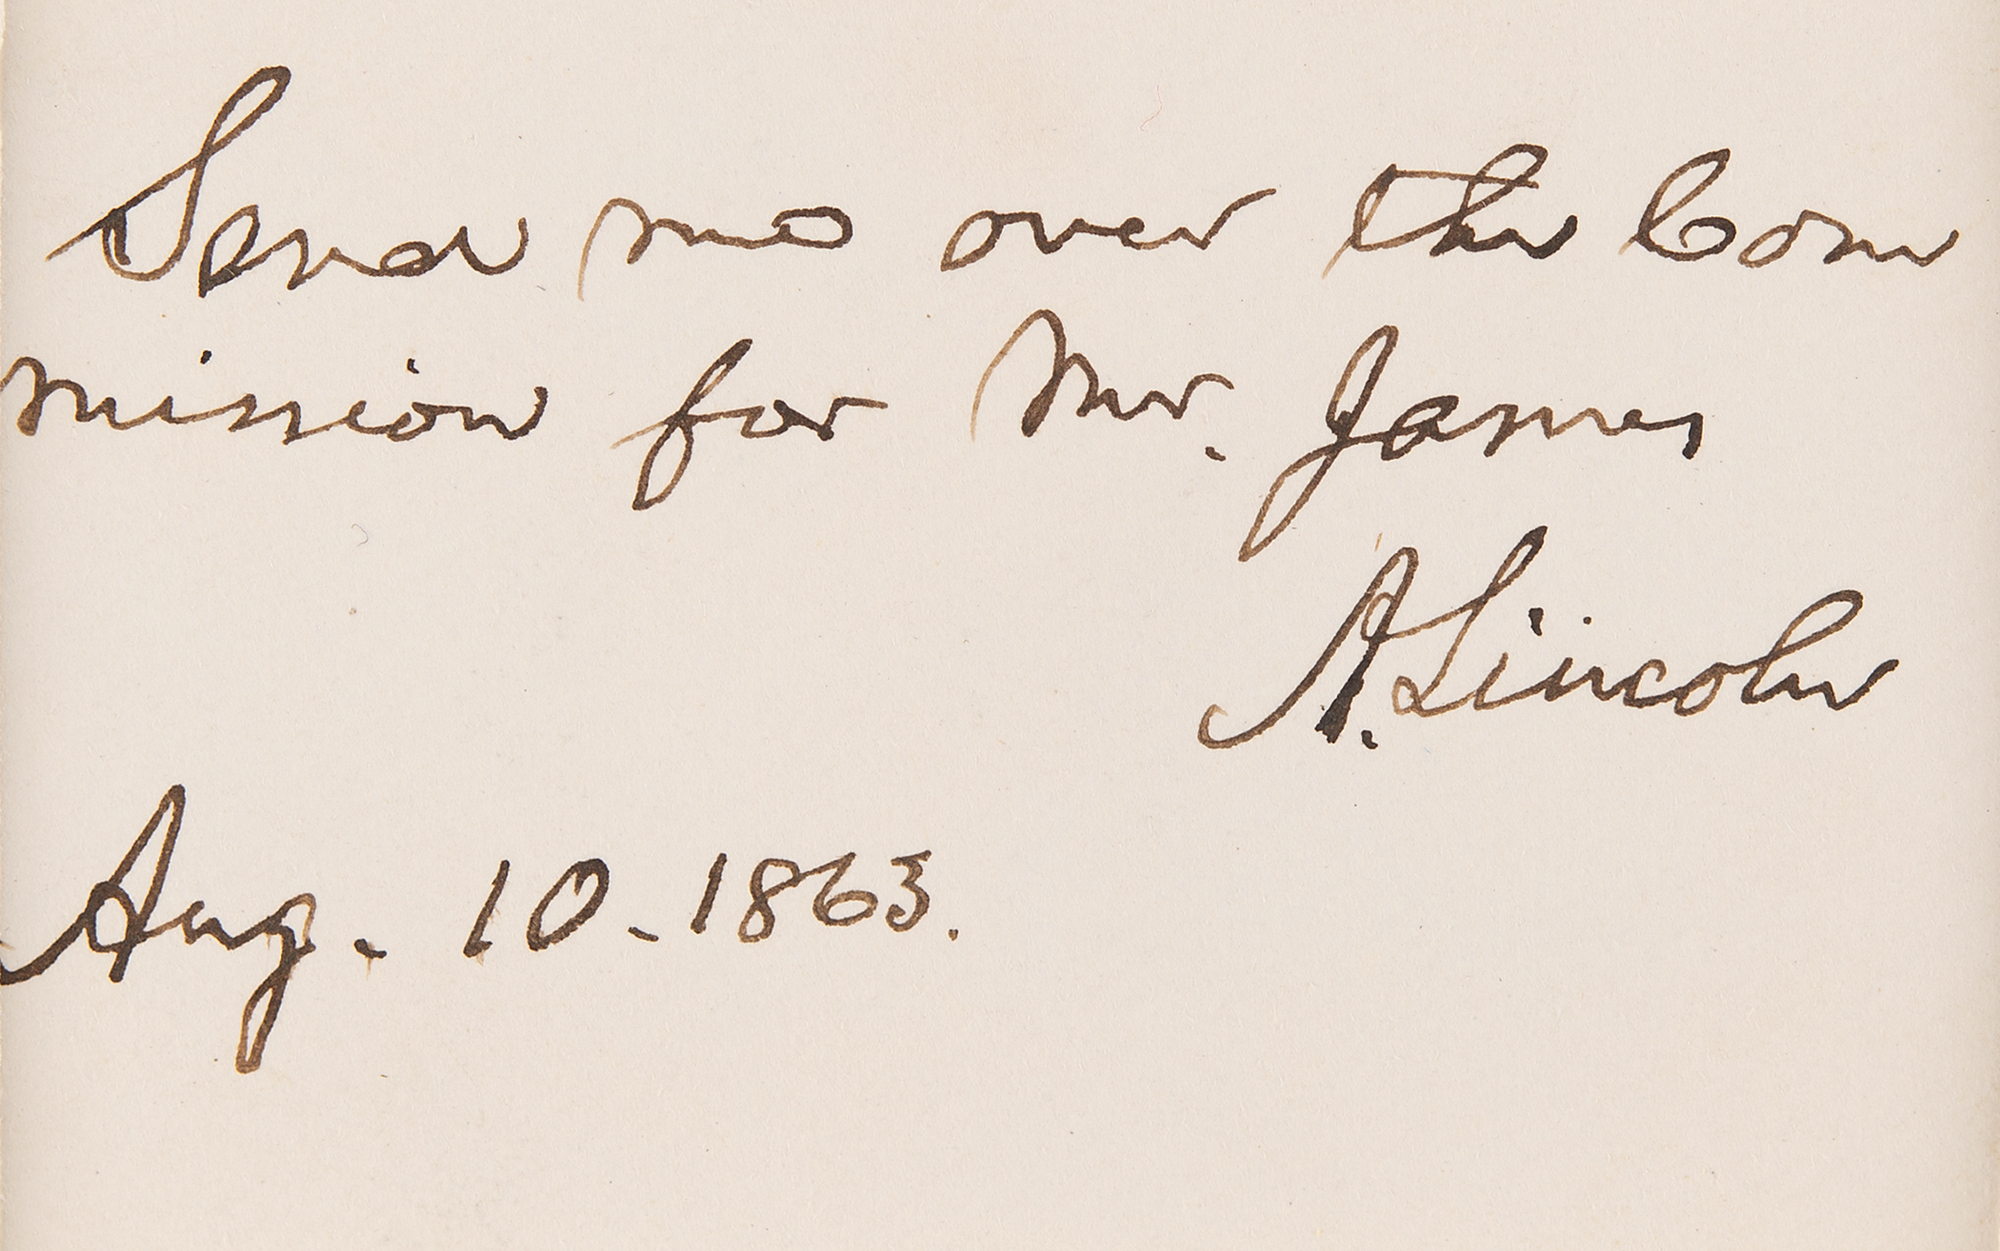 Send me over the Com
mission for Mr. James
A. Lincoln
Aug. 10. 1863.